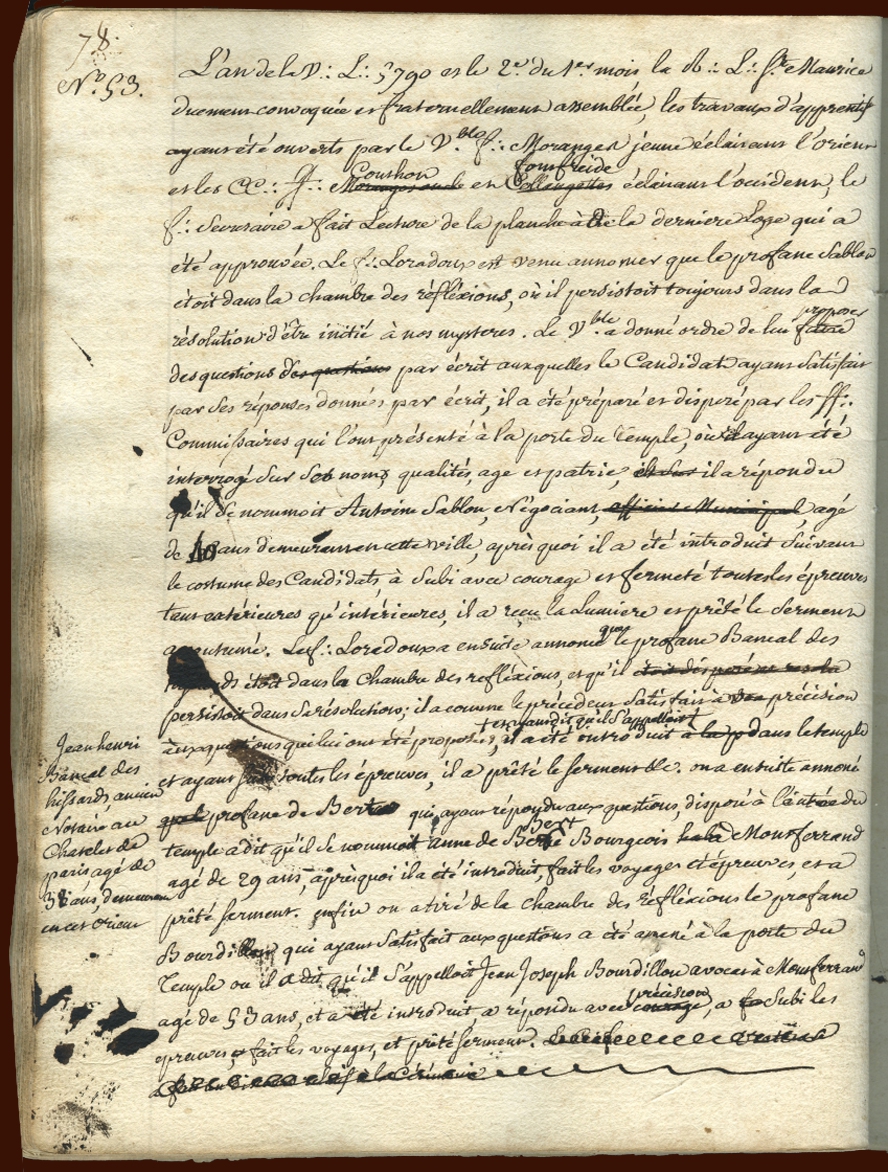 78.
N.º 53.
L'an de la V∴ L∴ 5790 et le 2.e du 1.er mois la R∴ L∴ St. Maurice
duement convoquée et fraternellement assemblée, les travaux d'apprentif
ayant été ouverts par le V.ble f∴ Moranges jeune éclairant l'orient
Couthon
et les CC∴ ff∴ et éclairant l'occident, le
f∴ Secretaire a fait Lecture de la planche à de la derniere Loge qui a
été approuvée. Le f∴ Loradoux est venu annoncer que le profane Sablon
étoit dans la chambre des réfléxions, où il persistoit toujours dans la
proposer
résolution d'être initié à nos mysteres. Le V.ble a donné ordre de lui faire
des questions des questions par écrit auxquelles le Candidat ayant satisfait
par ses réponses données par écrit, il a été préparé et disposé par les ff∴
Commissaires qui l'ont présenté à la porte du Temple, où il ayant été
interrogé sur ses noms qualités, age et patrie, il a répondu
qu'il se nommoit Antoine Sablon, Négociant, officier Municipal, agé
de ans demeurant en cette ville, après quoi il a été introduit suivant
le costume des Candidats, à subi avec courage et fermeté toutes les épreuves
tant extérieures qu'intérieures, il a reçu la Lumiere et prêté le serment
que
accoutumé. Le f∴ Loradoux a ensuite annoncé le profane Bancal des
étoit dans la Chambre des refléxions, et qu'il
persistoit dans sa résolution; il a comme le précédent satisfait à precision
et ayant dit qu'il s'appelloit
aux questions qui lui ont été proposées, il a été introduit dans le temple
Jean henri
Bancal des
hissards, ancien
Notaire au
Chatelet de
paris agé de
38 ans, demeurant
en cet Orient
et ayant subi toutes les épreuves, il a prêté le serment &c. on a ensuite annoncé
profane de qui ayant répondu aux questions, disposé à l'entrée du
Bert
temple a dit qu'il se nommoit anne de Bourgeois de Montferrand
agé de 29 ans, après quoi il a été introduit, fait les voyages et épreuves, et a
prêté serment. enfin on a tiré de la chambre des réfléxions le profane
Bourdillon qui ayant satisfait aux questions a été amené à la porte du
Temple ou il a dit qu'il s'appelloit Jean Joseph Bourdillon avocat à Montferrand
précision
agé de 53 ans, et a été introduit a répondu avec courage, a subi les
epreuves, fait les voyages, et prêté serment.